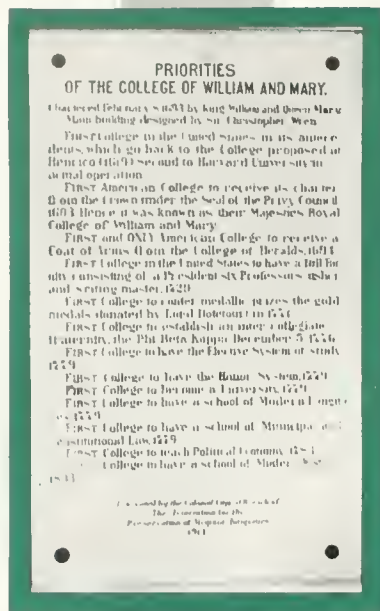 PRIORITIES
OF THE COLLEGE OF WILLIAM AND MARY.
Chartered February 8 1693 by King William and Queen Mary
Main building designed by Sir Christopher Wren
FIRST College in the United States in its antece
dents, which go back to the College proposed at
Henrico (1619) second to Harvard University in
actual operation
FIRST American College to receive its charter
from the Crown under the Seal of the Privy Council
1693 Hence it was known as their Majesties Royal
College of William and Mary
FIRST and ONLY American College to receive a
Coat of Arms from the College of Heralds, 1694
FIRST College in the United States to have a Full Fac
ulty consisting of a President six Professors usher
and writing master, 1729
FIRST College to confer medallic prizes the gold
medals donated by Lord Botetourt in 1771
FIRST College to establish an inter collegiate
fraternity, the Phi Beta Kappa December 5 1776
FIRST College to have the Elective System of study
1779
FIRST College to have the Honor System, 1779
FIRST College to become a University, 1779
FIRST College to have a school of Modern Langu
es 1779
FIRST College to have a school of Municipal and
nstitutional Law, 1779
FIRST College to teach Political Economy 1784
College to have a school of Modern
the Colonial Capital Branch of
The Association for the
Preservation of Virginia Antiquities